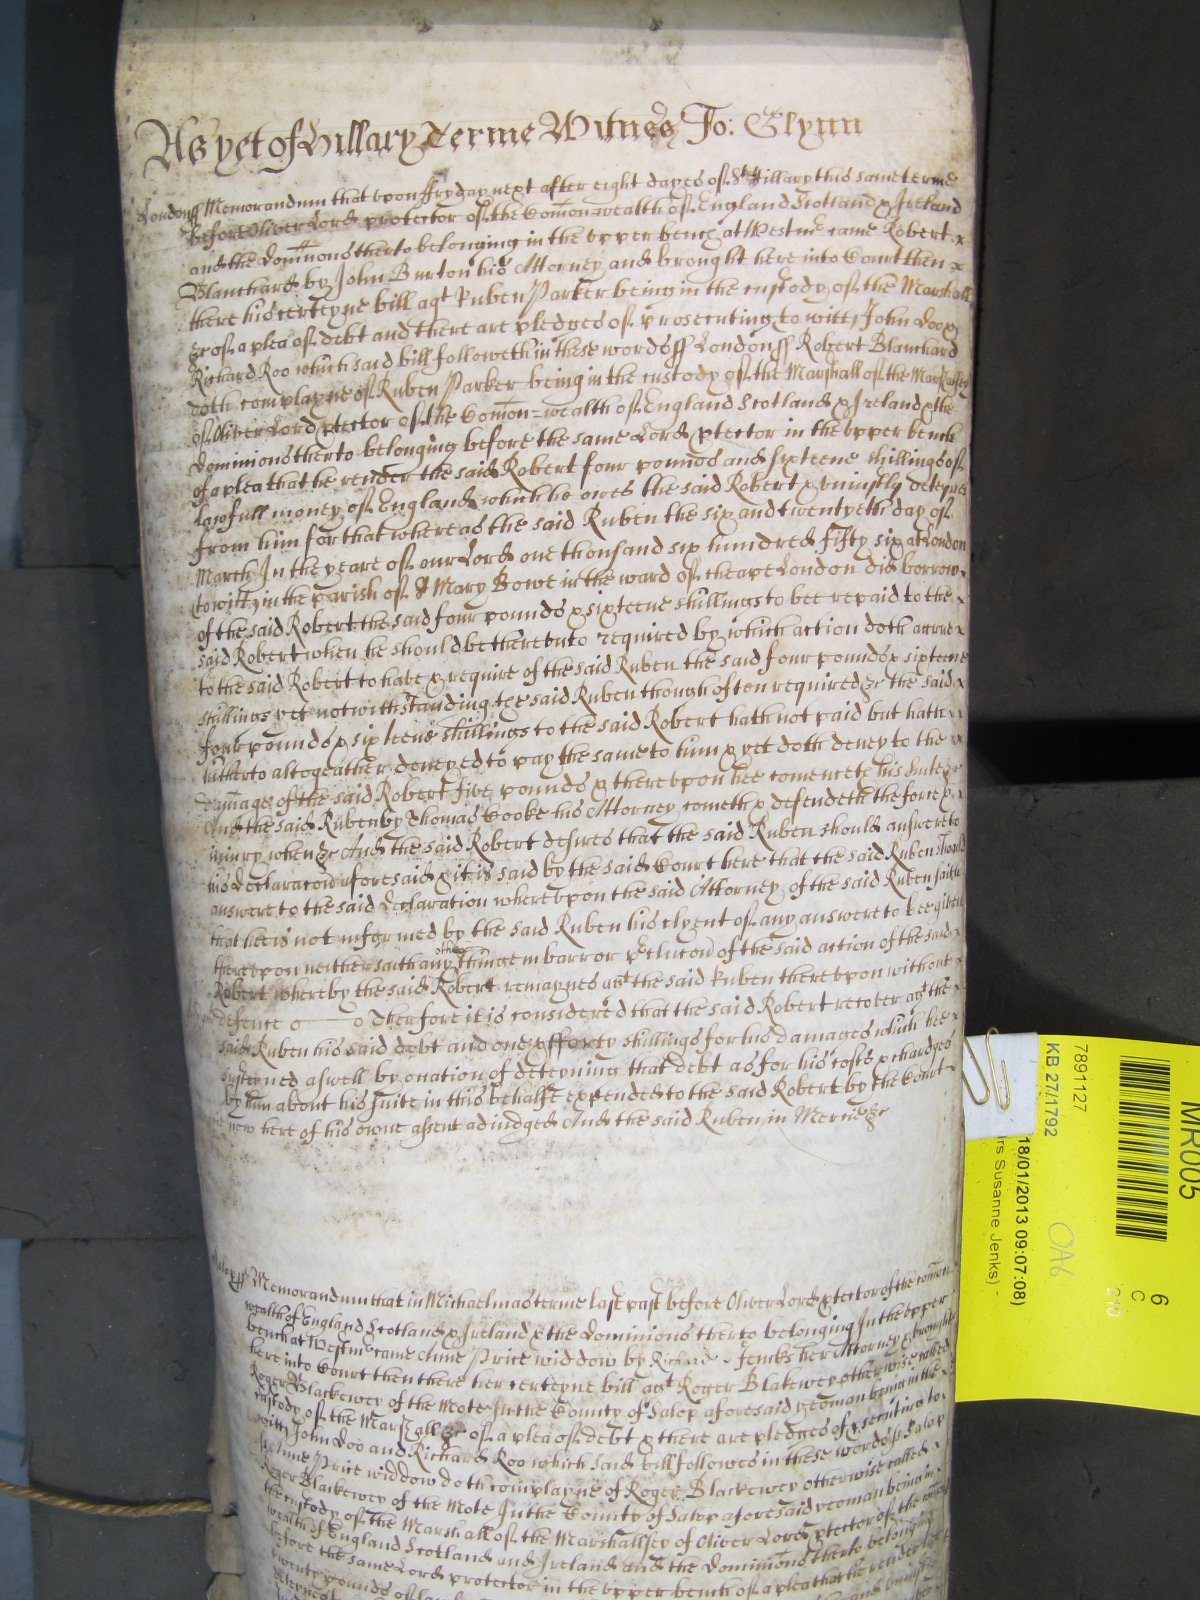 As yet of Hillary Terme Witnes Jo: Glynn
London ss Memorandum that upon ffryday next after eight dayes of St Hillary this same terme
Before Oliver Lord protector of the Comon-wealth of England Scotland & Ireland
and the Dominions therto belonging in the upper bench at Westmr came Robert
Blanchard by John Burton his Attorney and brought here into Court then
there his certeyne bill agt Ruben Parker being in the custody of the Marshall
&c of a plea of debt and there are pledges of prosecuting to witt John Doo &
Richard Roo which said bill followeth in these words ss London ss Robert Blanchard
doth complayne of Ruben Parker being in the custody of the Marshall of the Marshalsey
of Oliver Lord ptector of the Comon-wealth of England Scotland & Ireland & the
Dominions therto belonging before the same Lord ptector in the upper bench
of a plea that he render the said Robert four pounds and sixteene shillings of
lawfull money of England which he owes the said Robert & uniustly deteynes
from him for that whereas the said Ruben the six and twentyeth day of
March In the yeare of our Lord one thousand six hundred fifty six at London
(to witt) in the parish of St Mary Bowe in the ward of Cheape London did borrow
of the said Robert the said four pounds & sixteene shillings to bee repaid to the
said Robert when he should be thereunto required by which action doth accrue
to the said Robert to have & require of the said Ruben the said four pounds & sixteene
shillings yet notwithstanding the said Ruben though often required &c the said
four pounds & sixteene shillings to the said Robert hath not paid but hath
hitherto altogeather denyed to pay the same to him & yet doth deney to the
damage of the said Robert five pounds & thereupon hee comenceth his suite &c
And the said Ruben by Thomas Cooke his Attorney cometh & defendeth the force &
iniury when &c And the said Robert desires that the said Ruben should answere to
his declaracon aforesaid & it is said by the said Court here that the said Ruben should
answere to the said declaration whereupon the said Attorney of the said Ruben saith
that he is not informed by the said Ruben his clyent of any answere to bee given
thereupon neither saith any other thinge in barr or peclucon of the said action of the said
Robert whereby the said Robert remaynes agt the said Ruben thereupon without
defence o o Therfore it is considered that the said Robert recover agt the
said Ruben his said debt and one & fforty shillings for his damages which hee
susteyned aswell by ocation of deteyning that debt as for his costs & chardges
by him about his suite in this behalfe expended to the said Robert by the Court
now here of his owne assent adiudged And the said Ruben in Mercy &c
Salop ss Memorandum that in Michaelmas terme last past before Oliver Lord ptector of the comon
wealth of England Scotland & Ireland & the Dominions therto belonging In the upper
bench at Westmr came Anne Price widdow by Richard Jencks her Attorney & brought
here into Court then there her certeyne bill agt Roger Blakewey otherwise called
Roger Blackewey of the Mote In the County of Salop aforesaid yeoman being in the
custody of the Marshall &c of a plea of debt & there are pledges of psecuting to
witt John Doo and Richard Roo which said bill followes in these words ss Salop
ss Anne Price widdow doth complayne of Roger Blackewey otherwise called
Roger Blackewey of the Mote In the County of Salop aforesaid yeoman being in
the custody of the Marshall of the Marshallsey of Oliver Lord ptector of the comon
wealth of England Scotland and Ireland and the Dominions therto belonging
before the same Lord protector in the upper bench of a plea that he render
twenty pounds of
MR005
7891127
KB 27/1792
18/01/2013 09:07:08)
rs Susanne Jenks) -
6
C
OA6